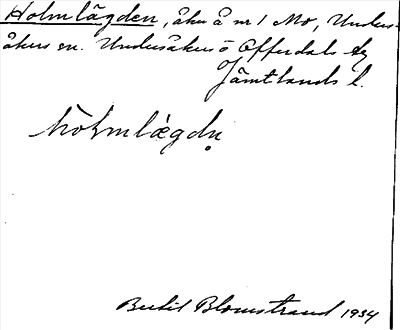 Holmlägden, åker å nr 1 Mo, Unders-
åkers sn. Undersåkers o Offerdals tg
Jämtlands l.
hòlmlägdn̥
Bertil Blomstrand 1934